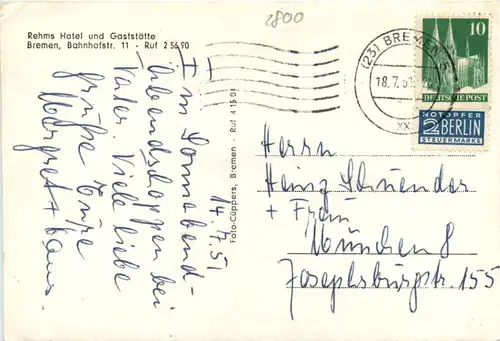 2800
Rehms Hotel und Gaststätte
Bremen, Bahnhofstr. 11 - Ruf 2 56 90
14.7.51
Im Sonnabend-
Abendschoppen bei
Vater. Viele liebe
Grüße Eure
Margret + Hans.
Foto-Cüppers, Bremen - Ruf 4 15 04
(23) BREMEN 5
18.7.51
XX
10
DEUTSCHE POST
NOTOPFER
2 BERLIN
STEUERMARKE
Herrn
Heinz Schuender
+ Frau
München 8
Josephsburgstr. 155